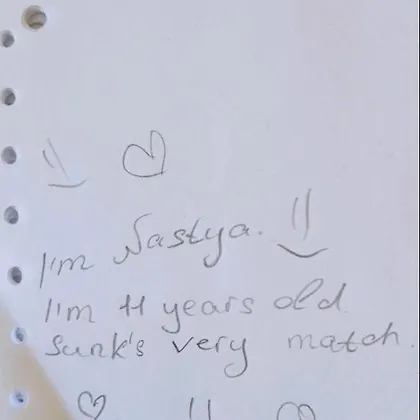 I'm Nastya.
I'm 11 years old.
Sunk's very match.